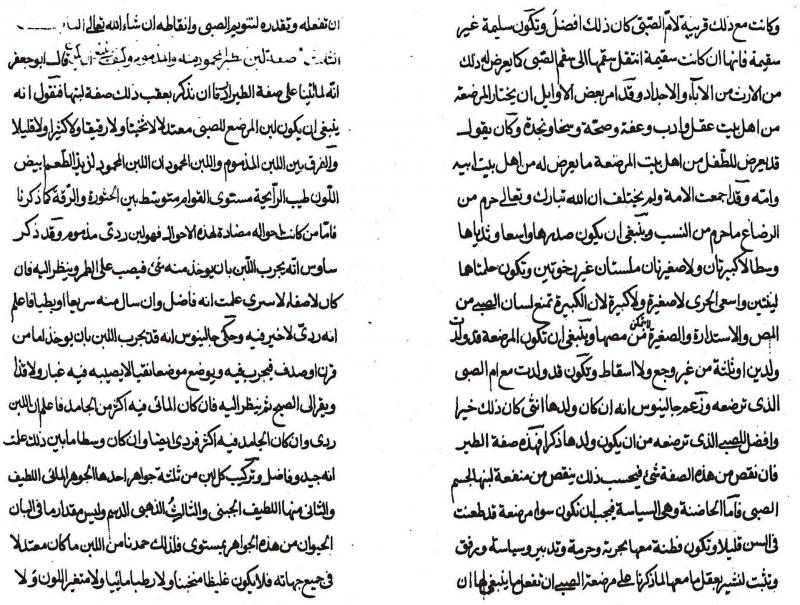 وكانت مع ذلك قريبة لام الصبي كان ذلك افضل وتكون سليمة غير
سقيمة فانها ان كانت سقيمة انتقل سقمها الى سقم الصبي كما يعرض له ذلك
من الارث من الآباء والاجداد وقد امر بعض الاوايل ان يختار المرضعة
من اهل بيت عقل وادب وعفة وصحة وسخا ونجدة وكان يقول
قد يعرض للطفل من اهل بيت المرضعة ما يعرض له من اهل بيت ابيه
وامه وقد اجمعت الامة ولم يختلف ان الله تبارك وتعالى حرم من
الرضاع ما حرم من النسب وينبغي ان يكون صدرها واسعا وثدياها
وسطا لا كبيرتان ولا صغيرتان ملستان غير رخوتين وتكون حلمتاها
لينتين واسعى الجرى لا صغيرة ولا كبيرة لان الكبيرة تمنع لسان الصبي من
المص والاستدارة والصغيرة من مصها وينبغي ان تكون المرضعة قد ولدت
ولدين او ثلثة من غير وجع ولا اسقاط وتكون قد ولدت مع ام الصبي
الذى ترضعه وزعم جالينوس انه ان كان ولدها انثى كان ذلك خيرا
وافضل للصبي الذى ترضعه من ان يكون ولدها ذكرا فهذه صفة الظير
فان نقص من هذه الصفة شئ فبحسب ذلك ينقص من منفعة لبنها لجسم
الصبي فاما الحاضنة وهى السياسة فيجب ان تكون سوا مرضعة قد طعنت
فى السن قليلا وتكون فطنة معها تجربة وحرمة وتدبير وسياسة ورفق
وتثبت لتشير بعقل ما معها لما ذكرنا على مرضعة الصبي ان تفعل ما ينبغي لها ان
ان تفعله وتقدره لتنويم الصبي وايقاظه ان شاء الله تعالى الباب
الثالث صفة لبن الظير المحمود منه والمذموم وكيف قال ابو جعفر
انه لما اتينا على صفة الظير راينا ان نذكر بعقب ذلك صفة لبنها فنقول انه
ينبغي ان يكون لبن المرضع للصبي معتدلا لا ثخينا ولا رقيقا ولا كثيرا ولا قليلا
والفرق بين اللبن المذموم واللبن المحمود ان اللبن المحمود لذيذ الطعم ابيض
اللون طيب الرايحة مستوى القوام متوسط بين الخثورة والرقة كما ذكرنا
فاما من كانت احواله مضادة لهذه الاحوال فهو لبن ردى مذموم وقد ذكر
ساوس انه يجرب اللبن بان يوخذ منه شئ فيصب على الظفر وينظر اليه فان
كان لا صفاء لا سرى علمت انه فاضل وان سال منه سريعا او بطيا فاعلم
انه ردى لا خير فيه وحكى جالينوس انه قد يجرب اللبن بان يوخذ اما من
قرن او صدف فيجرب فيه ويوضع موضعا نقيا لا يصيبه فيه غبار ولا قذا
ويقر الى الصبح ثم ينظر اليه فان كان المائى فيه اكثر من الجامد فاعلم ان اللبن
ردى وان كان الجامد فيه اكثر فردى ايضا وان كان وسطا ما بين ذلك علمت
انه جيد وفاضل وتركيب كل لبن من ثلثة جواهر احدها الجوهر المائى اللطيف
والثانى منها اللطيف الجبنى والثالث الذهبى الدسم وليس مقدار ما فى البان
الحيوان من هذه الجواهر بمستوى فلذلك حمدنا من اللبن ما كان معتدلا
فى جميع جهاته فلا يكون غليظا منجبنا ولا رطبا مائيا ولا متغير اللون ولا